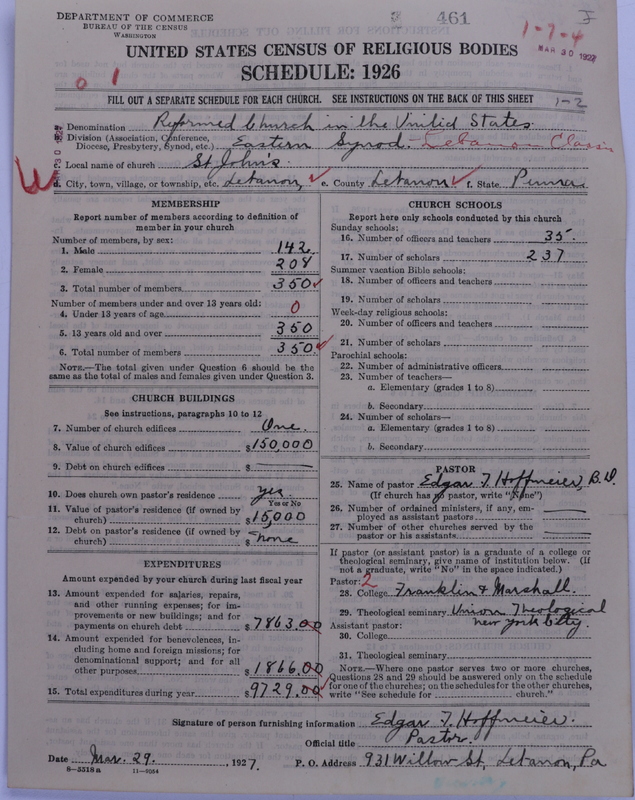 DEPARTMENT OF COMMERCE
BUREAU OF THE CENSUS
WASHINGTON
461
1-7-4
MAR 30 1927
UNITED STATES CENSUS OF RELIGIOUS BODIES
SCHEDULE: 1926
0 1
FILL OUT A SEPARATE SCHEDULE FOR EACH CHURCH. SEE INSTRUCTIONS ON THE BACK OF THIS SHEET
1-2
Denomination Reformed Church in the United States
Division (Association, Conference, Diocese, Presbytery, Synod, etc.) Eastern Synod. Lebanon Classis
Local name of church St. John's
d. City, town, village, or township, etc. Lebanon, e. County Lebanon f. State Penna
MEMBERSHIP
Report number of members according to definition of member in your church
Number of members, by sex:
1. Male 142
2. Female 208
3. Total number of members 350
Number of members under and over 13 years old:
4. Under 13 years of age 0
5. 13 years old and over 350
6. Total number of members 350
NOTE.—The total given under Question 6 should be the same as the total of males and females given under Question 3.
CHURCH BUILDINGS
See instructions, paragraphs 10 to 12
7. Number of church edifices One.
8. Value of church edifices $150,000
9. Debt on church edifices $ —
10. Does church own pastor's residence yes.
Yes or No
11. Value of pastor's residence (if owned by church) $15,000
12. Debt on pastor's residence (if owned by church) $ none
EXPENDITURES
Amount expended by your church during last fiscal year
13. Amount expended for salaries, repairs, and other running expenses; for improvements or new buildings; and for payments on church debt $7863.00
14. Amount expended for benevolences, including home and foreign missions; for denominational support; and for all other purposes $1866.00
15. Total expenditures during year $9729.00
CHURCH SCHOOLS
Report here only schools conducted by this church
Sunday schools:
16. Number of officers and teachers 35
17. Number of scholars 237
Summer vacation Bible schools:
18. Number of officers and teachers
19. Number of scholars
Week-day religious schools:
20. Number of officers and teachers
21. Number of scholars
Parochial schools:
22. Number of administrative officers
23. Number of teachers—
a. Elementary (grades 1 to 8)
b. Secondary
24. Number of scholars—
a. Elementary (grades 1 to 8)
b. Secondary
PASTOR
25. Name of pastor Edgar F. Hoffmeier, B.D.
(If church has no pastor, write "None")
26. Number of ordained ministers, if any, employed as assistant pastors —
27. Number of other churches served by the pastor or his assistants —
If pastor (or assistant pastor) is a graduate of a college or theological seminary, give name of institution below. (If not a graduate, write "No" in the space indicated.)
Pastor: 2
28. College Franklin & Marshall.
29. Theological seminary Union Theological
New York City
Assistant pastor:
30. College
31. Theological seminary
NOTE.—Where one pastor serves two or more churches, Questions 28 and 29 should be answered only on the schedule for one of the churches; on the schedules for the other churches, write "See schedule for church."
Signature of person furnishing information Edgar F. Hoffmeier.
Official title Pastor.
Date Mar. 29. , 1927. P. O. Address 931 Willow St, Lebanon, Pa
8—5318a 11—9054